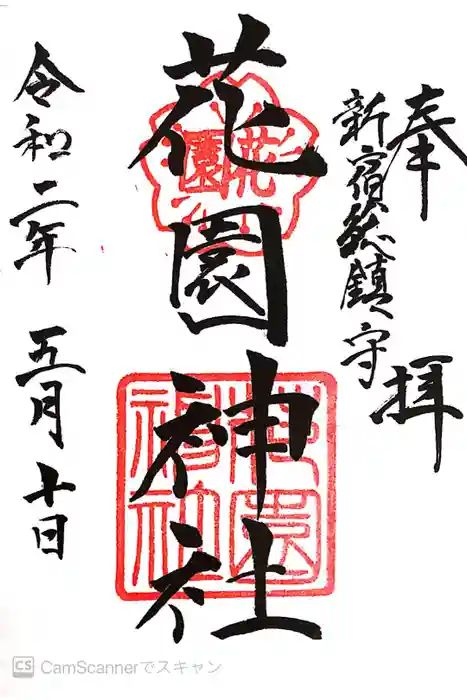 奉拝
新宿総鎮守
花園神社
花園
花園神社
令和二年 五月十日
CS CamScannerでスキャン